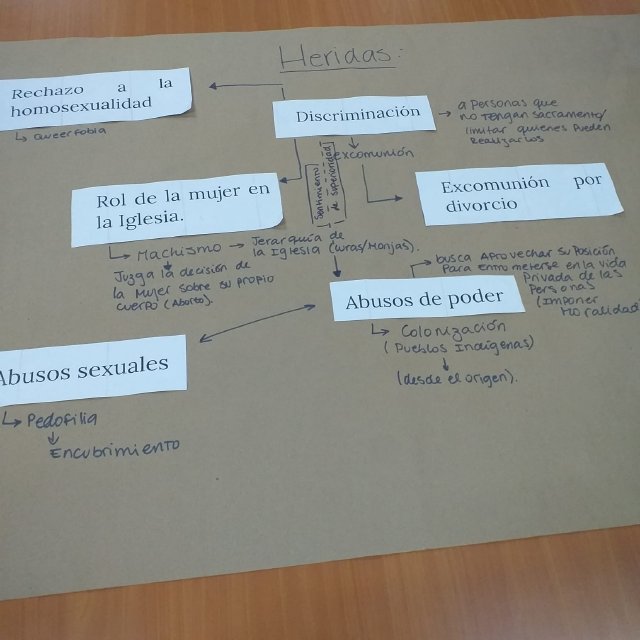 Heridas:
Rechazo a la
homosexualidad
↳ Queerfobia
Discriminación
→ a Personas que
no tengan sacramento/
limitar quienes pueden
realizarlos
excomunión
Sentimiento
de superioridad
Excomunión por
divorcio
Rol de la mujer en
la Iglesia.
↳ Machismo → Jerarquía de
la Iglesia (curas/Monjas).
Juzga la decisión de
la Mujer sobre su propio
cuerpo (Aborto).
Abusos de poder
busca Aprovechar su Posición
Para entrometerse en la vida
Privada de las
Personas
(Imponer
Moralidad
↳ Colonización
(Pueblos Indígenas)
(desde el origen).
Abusos sexuales
↳ Pedofilia
Encubrimiento